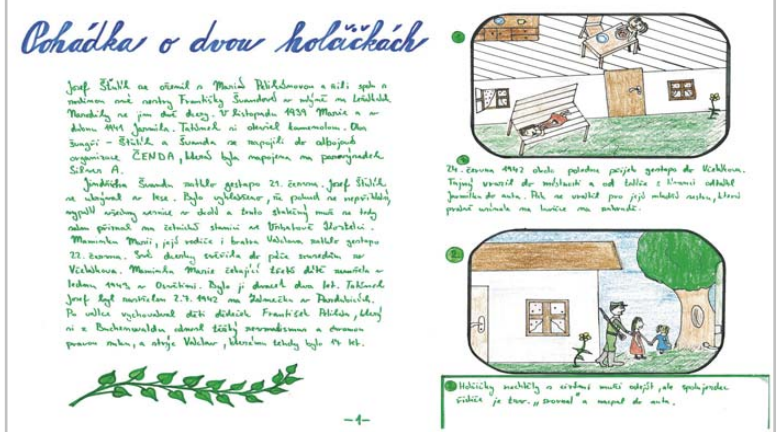 Pohádka o dvou holčičkách
Josef Šťulík se oženil s Marií Pelikánovou a žili spolu s
rodinou své sestry Františky Švandové ve mlýně na Ležákách.
Narodily se jim dvě dcery. V listopadu 1939 Marie a v
dubnu 1941 Jarmila. Tatínek si otevřel kamenolom. Oba
švagři - Šťulík a Švanda se zapojili do odbojové
organizace ČENDA, která byla napojena na paravýsadek
Silver A.
Jindřicha Švandu zatklo gestapo 21. června. Josef Šťulík
se ukrýval v lese. Bylo vyhlášeno, že pokud se nepřihlásí,
vypálí všechny vesnice v okolí a tento statečný muž se tedy
sám přiznal na četnické stanici ve Vrbatově Kostelci.
Maminku Marii, její rodiče i bratra Václava zatklo gestapo
22. června. Své dcerky svěřila do péče sousedům ve
Včelákově. Maminka Marie čekající třetí dítě zemřela v
lednu 1943 v Osvětimi. Bylo jí dvacet dva let. Tatínek
Josef byl zastřelen 2.7.1942 na Zámečku v Pardubicích.
Po válce vychovával děti dědeček František Pelikán, který
si z Buchenwaldu odnesl těžký revmatismus a
pravou ruku, a strýc Václav, kterému tehdy bylo 17 let.
-1-
1.
1. 24. června 1942 okolo poledne přijelo gestapo do Včelákova.
Tajný vrazil do místnosti a od talíře s odtáhl
Jarmilku do auta. Pak se vrátil pro její sestru, která
právě usínala na lavičce na zahradě.
2.
2. Holčičky nechtěly s cizími muži odejít, ale
řidiče je tzv. „ " a naspal do auta.